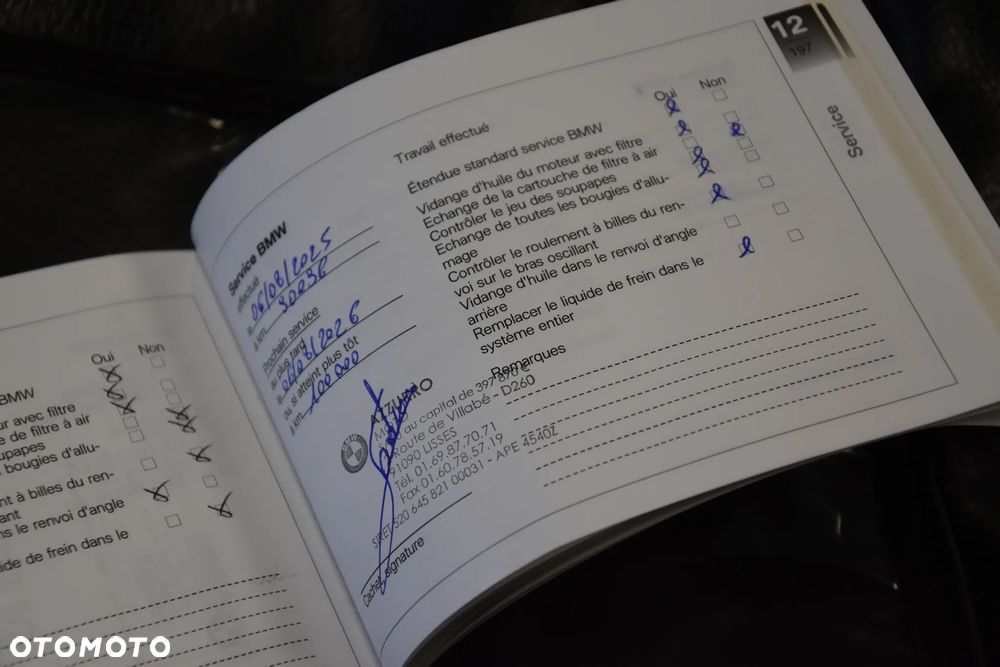 BMW
ur avec filtre
e de filtre à air
upapes
bougies d'allu-
nt à billes du ren-
ant
ns le renvoi d'angle
ide de frein dans le
Oui
Non
Service BMW
effectué
le 06/08/2025
à km
Prochain service
au plus tard
le 06/08/2026
ou, si atteint plus tôt
à km 100 000
AZZURRO
au capital de 397 870 €
Route de Villabé - D260
91090 LISSES
Tél. 01.69.87.70.71
Fax 01.60.78.57.19
SIRET 520 645 821 00031 - APE 4540Z
Cachet, signature
Travail effectué
Oui
Non
Étendue standard service BMW
Vidange d'huile du moteur avec filtre
Echange de la cartouche de filtre à air
Contrôler le jeu des soupapes
Echange de toutes les bougies d'allu-
mage
Contrôler le roulement à billes du ren-
voi sur le bras oscillant
Vidange d'huile dans le renvoi d'angle
arrière
Remplacer le liquide de frein dans le
système entier
Remarques
12
197
Service
OTOMOTO